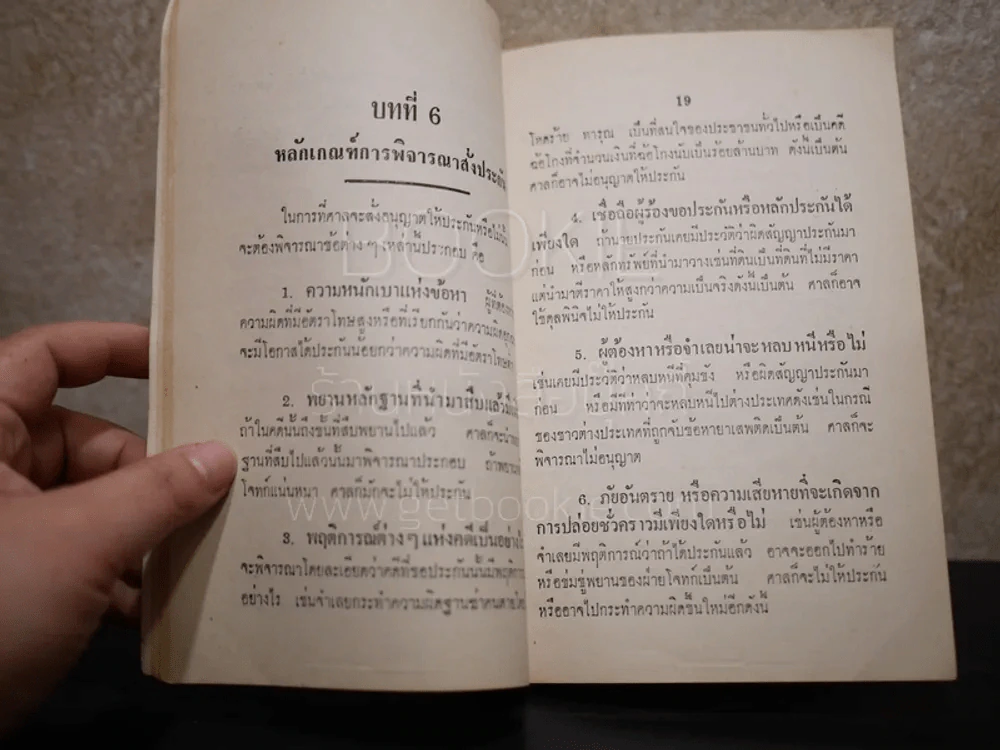 บทที่ 6
หลักเกณฑ์การพิจารณาสั่งประกัน
ในการที่ศาลจะสั่งอนุญาตให้ประกันหรือไม่นั้น
จะต้องพิจารณาข้อต่าง ๆ เหล่านี้ประกอบ คือ
1. ความหนักเบาแห่งข้อหา ผู้ที่ต้องหา
ความผิดที่มีอัตราโทษสูงหรือที่เรียกกันว่าความผิดอุก
จะมีโอกาสได้ประกันน้อยกว่าความผิดที่มีอัตราโทษต่ำ
2. พยานหลักฐานที่นำมาสืบแล้วมี
ถ้าในคดีนั้นถึงชั้นที่สืบพยานไปแล้ว ศาลก็จะนำ
ฐานที่สืบไปแล้วนั้นมาพิจารณาประกอบ ถ้าพยาน
โจทก์แน่นหนา ศาลก็มักจะไม่ให้ประกัน
3. พฤติการณ์ต่าง ๆ แห่งคดีเป็นอย่างไร
จะพิจารณาโดยละเอียดว่าคดีที่ขอประกันนั้นมีพฤติ
อย่างไร เช่นจำเลยกระทำความผิดฐานฆ่าคนตายโดย
19
โหดร้าย ทารุณ เป็นที่สนใจของประชาชนทั่วไปหรือเป็นคดี
ฉ้อโกงที่จำนวนเงินที่ฉ้อโกงนับเป็นร้อยล้านบาท ดังนี้เป็นต้น
ศาลก็อาจไม่อนุญาตให้ประกัน
4. เชื่อถือผู้ร้องขอประกันหรือหลักประกันได้
เพียงใด ถ้านายประกันเคยมีประวัติว่าผิดสัญญาประกันมา
ก่อน หรือหลักทรัพย์ที่นำมาวางเช่นที่ดินเป็นที่ดินที่ไม่มีราคา
แต่นำมาตีราคาให้สูงกว่าความเป็นจริงดังนี้เป็นต้น ศาลก็อาจ
ใช้ดุลพินิจไม่ให้ประกัน
5. ผู้ต้องหาหรือจำเลยน่าจะหลบหนีหรือไม่
เช่นเคยมีประวัติว่าหลบหนีที่คุมขัง หรือผิดสัญญาประกันมา
ก่อน หรือมีทีท่าว่าจะหลบหนีไปต่างประเทศดังเช่นในกรณี
ของชาวต่างประเทศที่ถูกจับข้อหายาเสพติดเป็นต้น ศาลก็จะ
พิจารณาไม่อนุญาต
6. ภัยอันตราย หรือความเสียหายที่จะเกิดจาก
การปล่อยชั่วคราวมีเพียงใดหรือไม่ เช่นผู้ต้องหาหรือ
จำเลยมีพฤติการณ์ว่าถ้าได้ประกันแล้ว อาจจะออกไปทำร้าย
หรือข่มขู่พยานของฝ่ายโจทก์เป็นต้น ศาลก็จะไม่ให้ประกัน
หรืออาจไปกระทำความผิดขึ้นใหม่อีกดังนี้
BOOKIE
www.getbookie.com